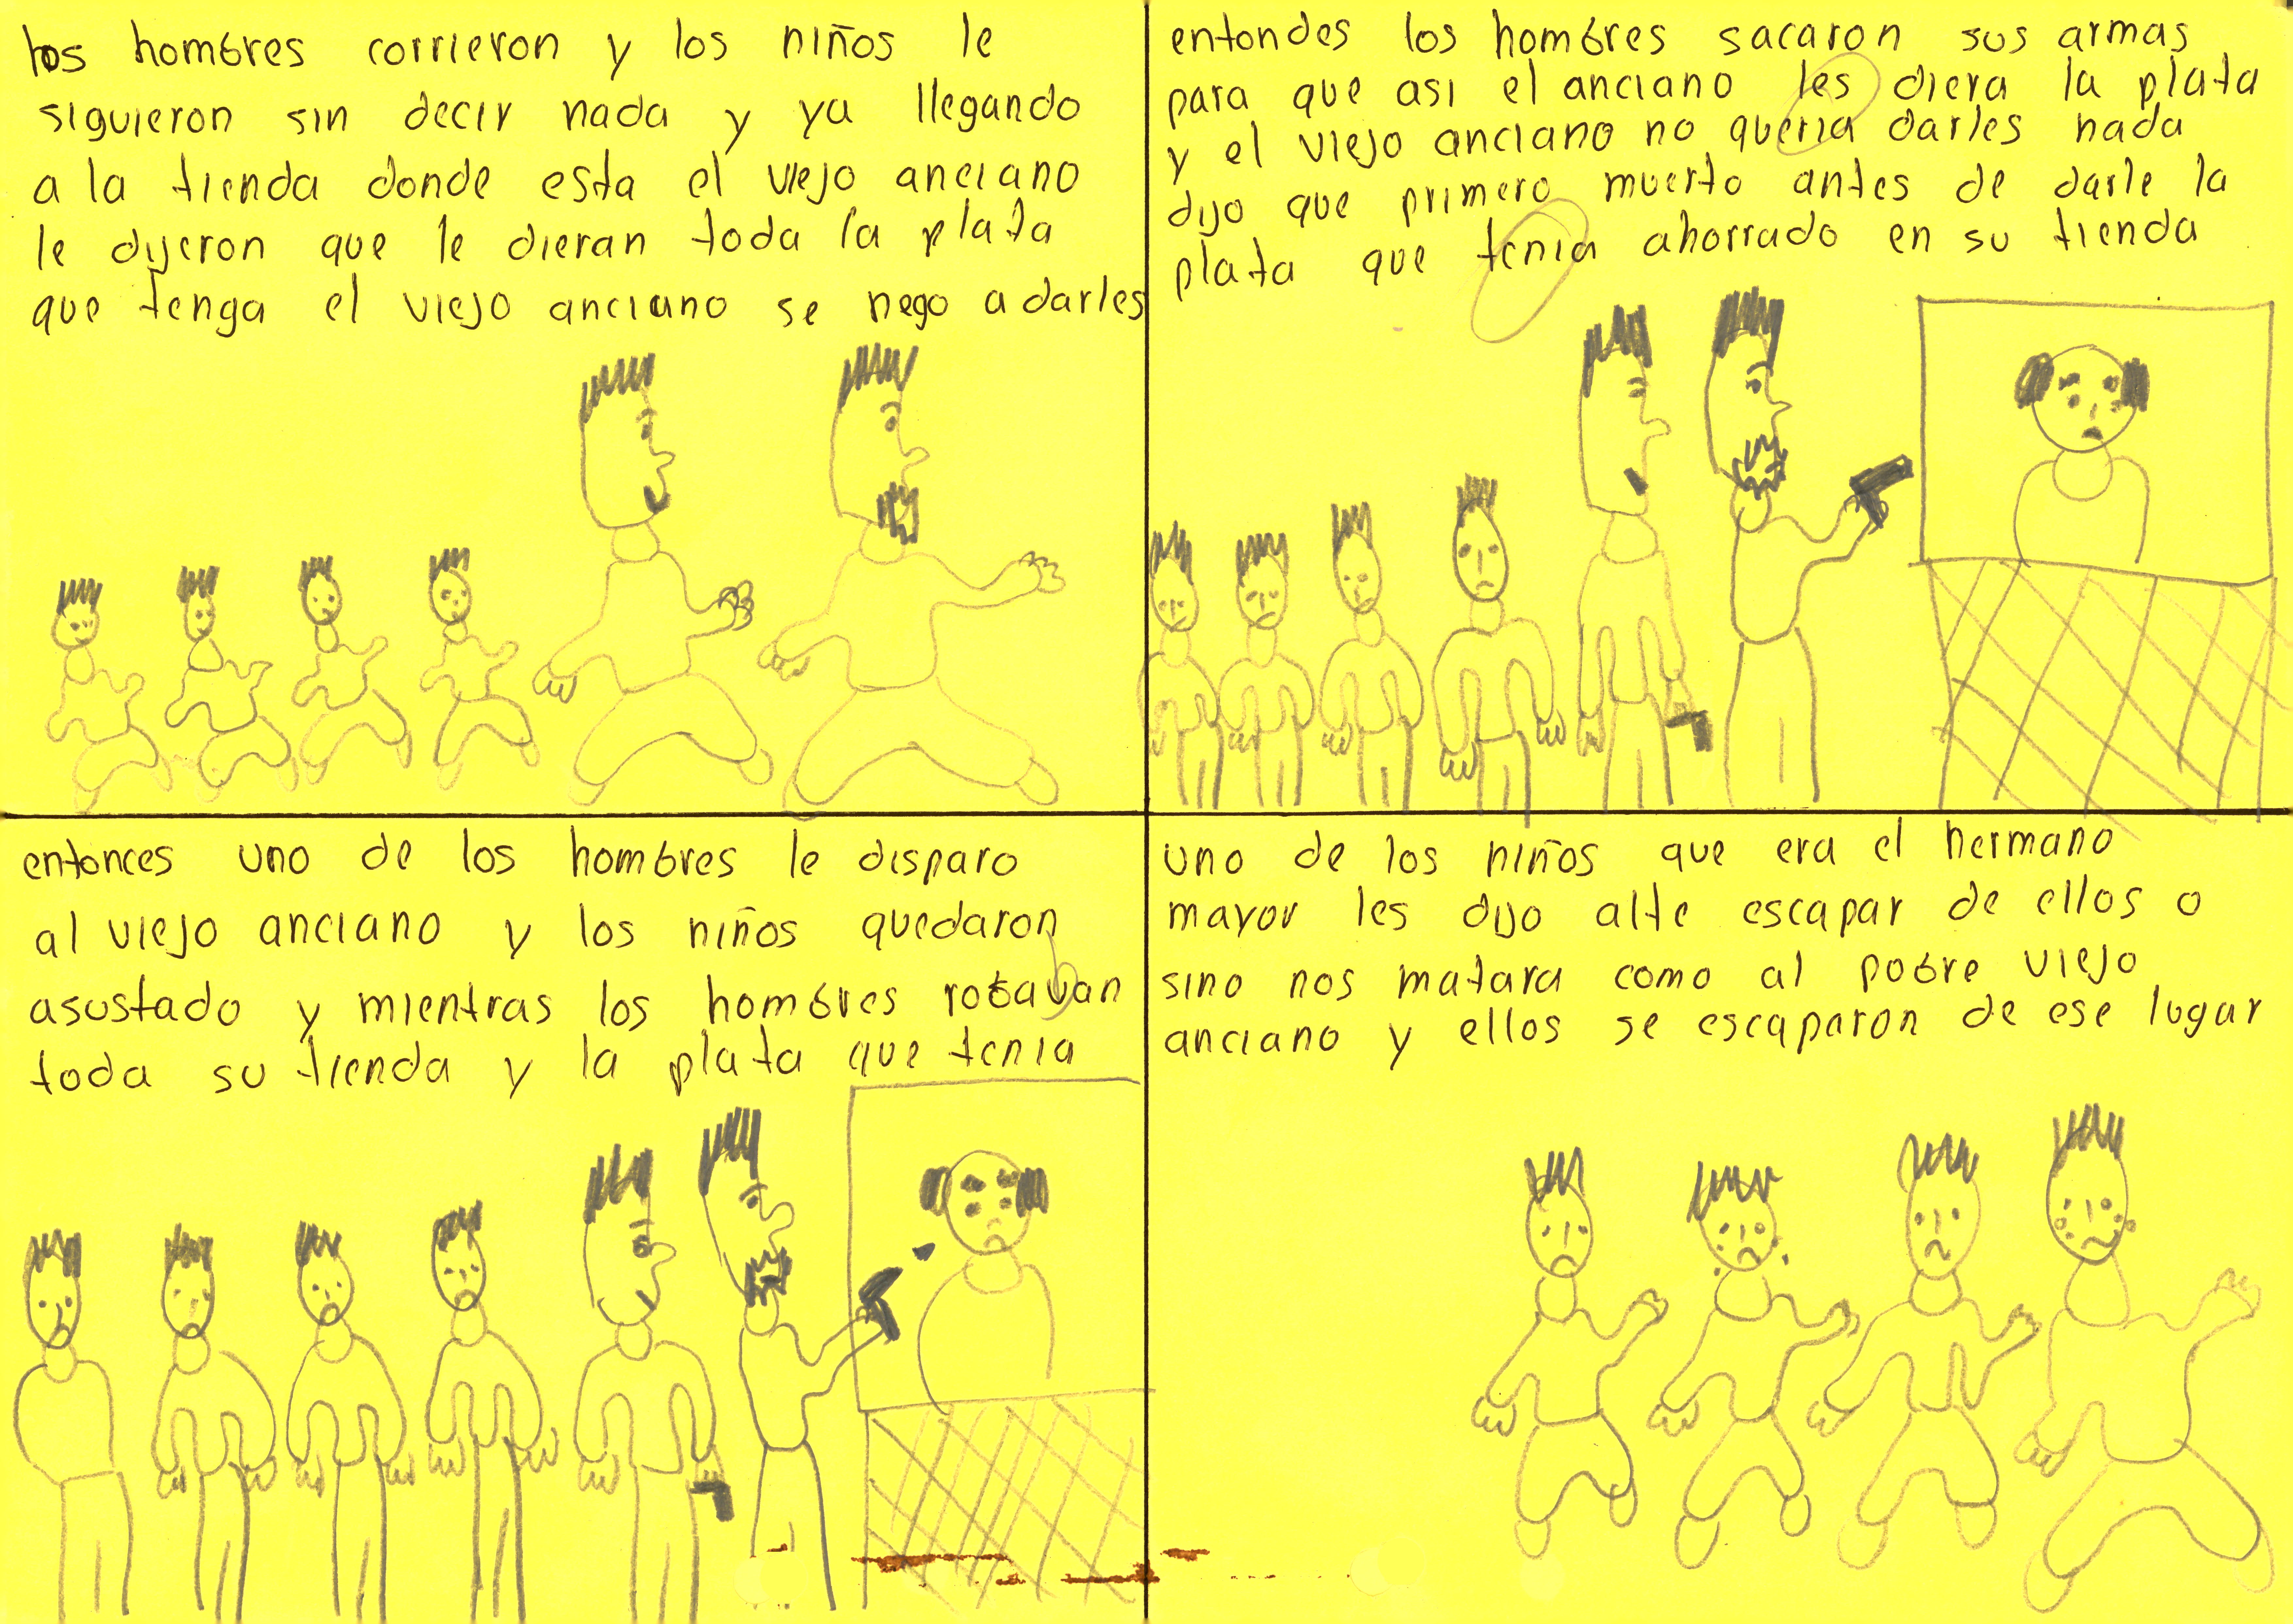 los hombres corrieron y los niños le
siguieron sin decir nada y ya llegando
a la tienda donde esta el viejo anciano
le dijeron que le dieran toda la plata
que tenga el viejo anciano se nego a darles
entondes los hombres sacaron sus armas
para que asi el anciano les diera la plata
y el viejo anciano no queria darles nada
dijo que primero muerto antes de darle la
plata que tenia ahorrado en su tienda
entonces uno de los hombres le disparo
al viejo anciano y los niños quedaron
asustado y mientras los hombres robavan
toda su tienda y la plata que tenia
uno de los niños que era el hermano
mayor les dijo alte escapar de ellos o
sino nos matara como al pobre viejo
anciano y ellos se escaparon de ese lugar